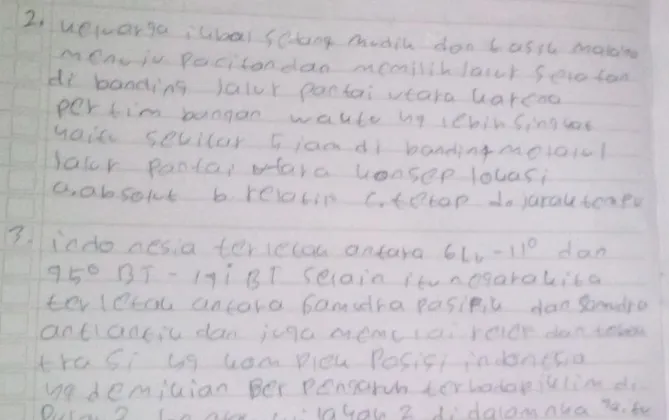 2. Keluarga iqbal sedang mudik dan
menuju Pacitan dan memilih Jalur Selatan
di banding Jalur pantai utara karena
pertimbangan waktu yg lebih singkat
yaitu sekitar 5 jam di banding melalui
Jalur pantai utara konsep lokasi
a. absolut b. relatip c. tetap d. jarak tempu
3. indonesia terletak antara 6LU - 11° dan
95° BT - 141 BT Selain itu negara kita
terletak antara Samudra pasifik dan Samudra
antlantik dan juga mempunyai relief dan
trasi yg komplek Posisi indonesia
yg demikian Berpengaruh terhadap iklim di
di dalamnya